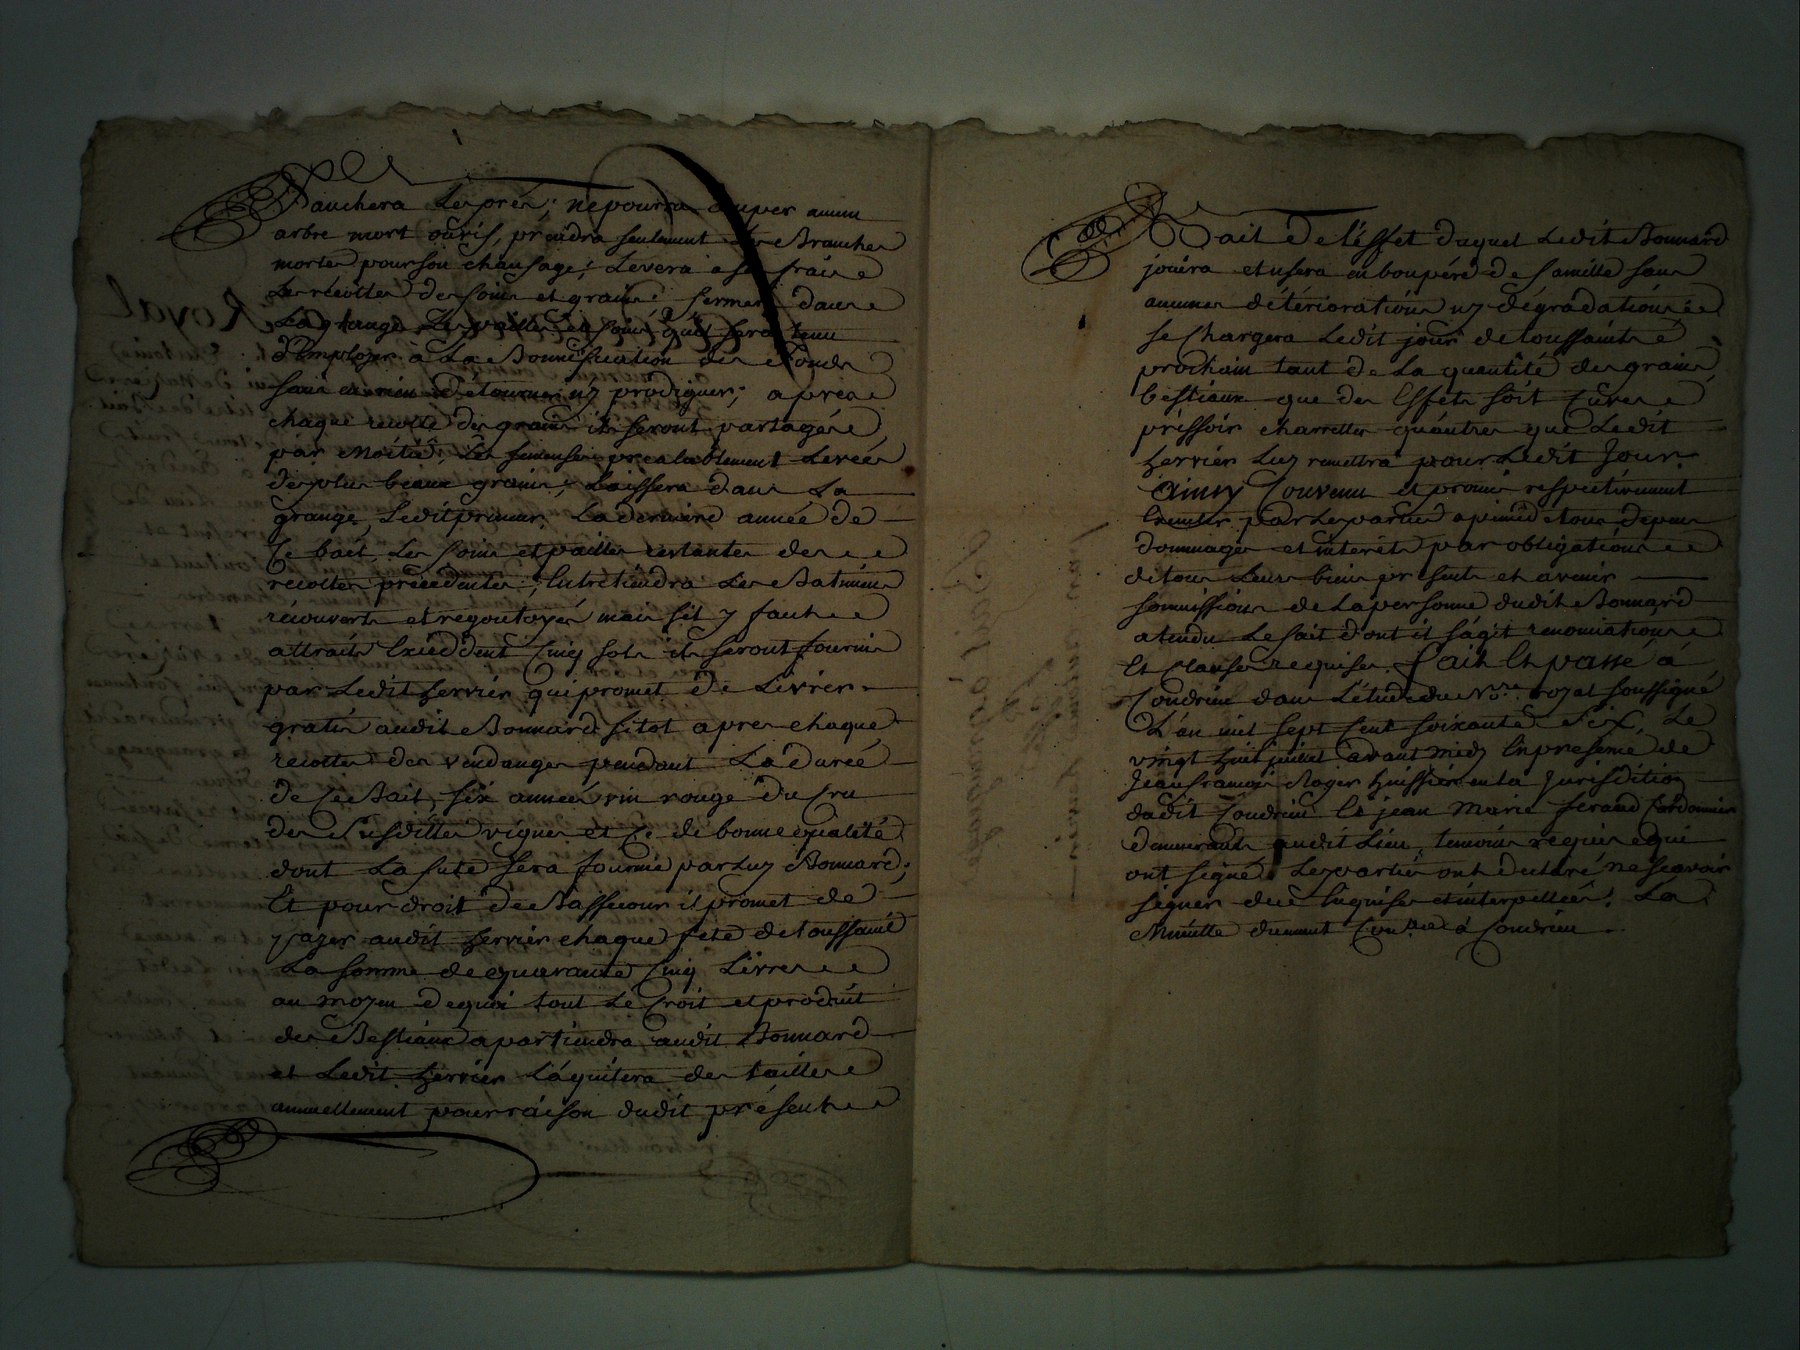 fauchera Les prés; ne pourra couper aucun
arbre mort ou vis, prendra seulement Les Branches
mortes pour son chaufage; Levera a ses fraix
Les récoltes des foins et grains; fermera dans
La grange Les pailles et foins qu'il sera tenu
d'employer à La Bonnification des fonds
sans en rien détourner ny prodiguer; après
chaque récolte des grains ils seront partagés
par Moitié; Les semences prealablement Levées
des plus beaux grains; Laissera dans La
grange Ledit preneur, La derniere année de
Ce bail Les foins et pailles restantes des
recoltes précedentes; Entretiendra Les Batimens
recouverts et regoutoyés mais s'il y faut
attraits Excédent Cinq sols ils seront fournis
par Ledit Fervier qui promet de Livrer
gratis audit Bonnard sitot apres chaque
récolte des vendanges pendant La durée
de Ce Bail, six années vin rouge du Cru
des Susdittes vignes et Ce de bonne qualité
dont La fute sera fournie par Luy Bonnard;
Et pour droit de Bassecour il promet de
payer audit Fervier chaque fete de toussaint
La somme de quarante Cinq Livres
au moyen de quoi tout Le Croit et produit
des Bestiaux apartiendra audit Bonnard
et Ledit Fervier L'aquitera des tailles
annuellement pour raison dudit présent
Bail De l'éffet duquel Ledit Bonnard
jouira et usera en bon pére de famille sans
aucunes détériorations ny dégradations
se Chargera Ledit jour de toussaints
prochain tant de La quantité des grains
bestiaux que des Effets soit Cuves
préssoir charrettes qu'autres que Ledit
Fervier Luy remettra pour Ledit Jour.
Ainsy Convenu et promis respectivement
par Les parties a peine de tous depens
dommages et interêts par obligations
de tous Leurs biens presents et avenir
soumissions de La personne dudit Bonnard
atendu Le fait dont il s'ágit renonciations
Et Clauses requises, Fait Et passé à
Condrieu dans L'étude du No.re royal soussigné
L'an mil sept Cent soixante Six Le
vingt huit juillet avant midy En presence de
Jean francois Roger huissier en la Jurisdiction
dudit Condrieu Et jean Marie féraud Cordonnier
demeurants audit Lieu, temoins requis qui
ont signé Les parties ont declaré ne scavoir
signer de ce Enquises et interpellées; La
Minutte duement à Condrieu.